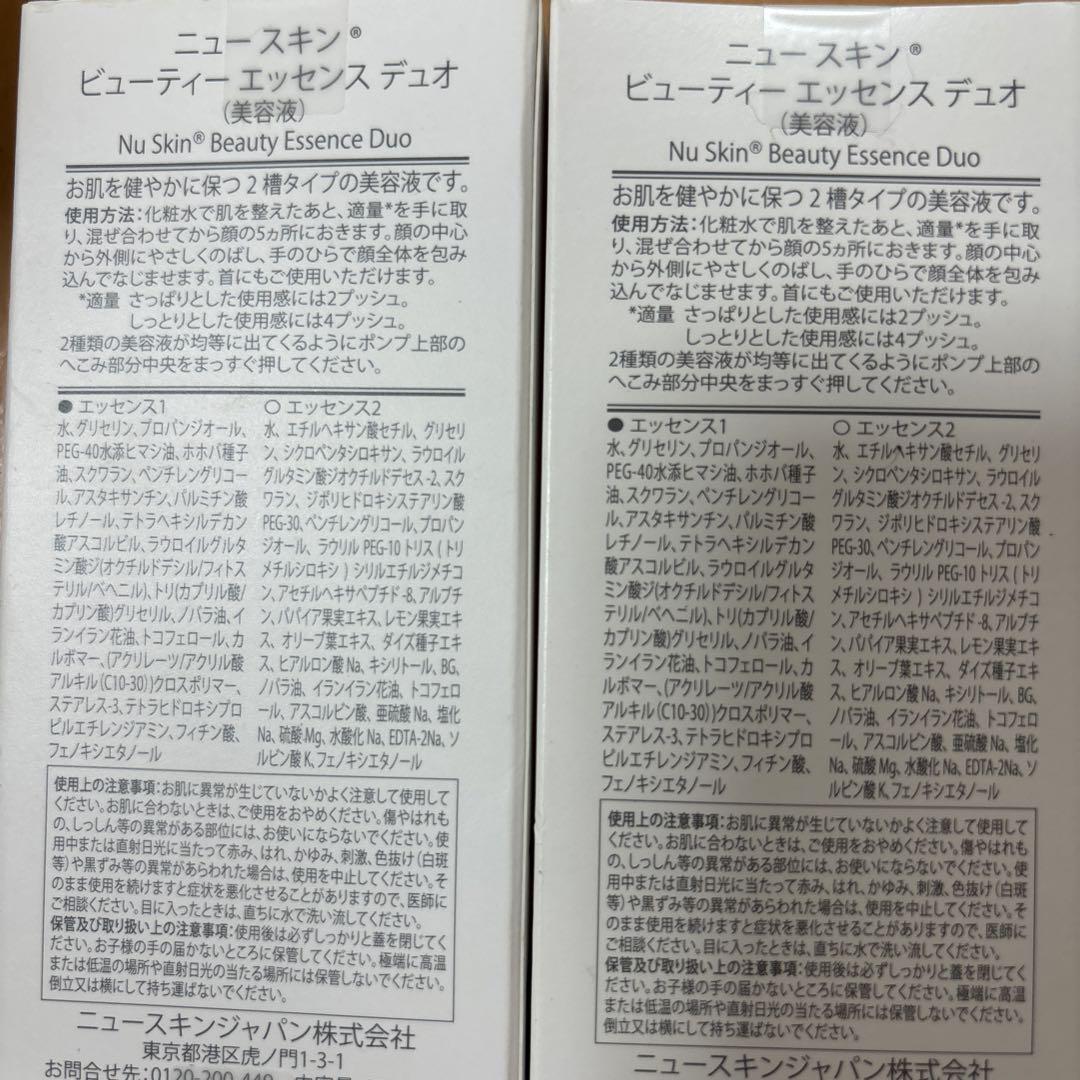 ニュー スキン®
ビューティー エッセンス デュオ
(美容液)
Nu Skin® Beauty Essence Duo
お肌を健やかに保つ2槽タイプの美容液です。
使用方法:化粧水で肌を整えたあと、適量*を手に取
り、混ぜ合わせてから顔の5ヵ所におきます。顔の中心
から外側にやさしくのばし、手のひらで顔全体を包み
込んでなじませます。首にもご使用いただけます。
*適量 さっぱりとした使用感には2プッシュ。
しっとりとした使用感には4プッシュ。
2種類の美容液が均等に出てくるようにポンプ上部の
へこみ部分中央をまっすぐ押してください。
● エッセンス1
水、グリセリン、プロパンジオール、
PEG-40水添ヒマシ油、ホホバ種子
油、スクワラン、ペンチレングリコー
ル、アスタキサンチン、パルミチン酸
レチノール、テトラヘキシルデカン
酸アスコルビル、ラウロイルグルタ
ミン酸ジ(オクチルドデシル/フィトス
テリル/ベヘニル)、トリ(カプリル酸/
カプリン酸)グリセリル、ノバラ油、イ
ランイラン花油、トコフェロール、カ
ルボマー、(アクリレーツ/アクリル酸
アルキル(C10-30))クロスポリマー、
ステアレス-3、テトラヒドロキシプロ
ピルエチレンジアミン、フィチン酸、
フェノキシエタノール
○ エッセンス2
水、エチルヘキサン酸セチル、グリセリ
ン、シクロペンタシロキサン、ラウロイル
グルタミン酸ジオクチルドデセス-2、スク
ワラン、ジポリヒドロキシステアリン酸
PEG-30、ペンチレングリコール、プロパン
ジオール、ラウリル PEG-10 トリス ( トリ
メチルシロキシ ) シリルエチルジメチコ
ン、アセチルヘキサペプチド-8、アルブチ
ン、パパイア果実エキス、レモン果実エキ
ス、オリーブ葉エキス、ダイズ種子エキ
ス、ヒアルロン酸 Na、キシリトール、BG、
ノバラ油、イランイラン花油、トコフェロ
ール、アスコルビン酸、亜硫酸 Na、塩化
Na、硫酸 Mg、水酸化 Na、EDTA-2Na、ソ
ルビン酸 K、フェノキシエタノール
使用上の注意事項:お肌に異常が生じていないかよく注意して使用して
ください。お肌に合わないときは、ご使用をおやめください。傷やはれも
の、しっしん等の異常がある部位には、お使いにならないでください。使
用中または直射日光に当たって赤み、はれ、かゆみ、刺激、色抜け(白斑
等)や黒ずみ等の異常があらわれた場合は、使用を中止してください。そ
のまま使用を続けますと症状を悪化させることがありますので、医師に
ご相談ください。目に入ったときは、直ちに水で洗い流してください。
保管及び取り扱い上の注意事項:使用後は必ずしっかりと蓋を閉じてく
ださい。お子様の手の届かないところに保管してください。極端に高温
または低温の場所や直射日光の当たる場所には保管しないでください。
倒立又は横にして持ち運ばないでください。
ニュースキンジャパン株式会社
東京都港区虎ノ門1-3-1
お問合せ先:0120-200-449
ニュー スキン®
ビューティー エッセンス デュオ
(美容液)
Nu Skin® Beauty Essence Duo
お肌を健やかに保つ2槽タイプの美容液です。
使用方法:化粧水で肌を整えたあと、適量*を手に取
り、混ぜ合わせてから顔の5ヵ所におきます。顔の中心
から外側にやさしくのばし、手のひらで顔全体を包み
込んでなじませます。首にもご使用いただけます。
*適量 さっぱりとした使用感には2プッシュ。
しっとりとした使用感には4プッシュ。
2種類の美容液が均等に出てくるようにポンプ上部の
へこみ部分中央をまっすぐ押してください。
● エッセンス1
水、グリセリン、プロパンジオール、
PEG-40水添ヒマシ油、ホホバ種子
油、スクワラン、ペンチレングリコー
ル、アスタキサンチン、パルミチン酸
レチノール、テトラヘキシルデカン
酸アスコルビル、ラウロイルグルタ
ミン酸ジ(オクチルドデシル/フィトス
テリル/ベヘニル)、トリ(カプリル酸/
カプリン酸)グリセリル、ノバラ油、イ
ランイラン花油、トコフェロール、カ
ルボマー、(アクリレーツ/アクリル酸
アルキル(C10-30))クロスポリマー、
ステアレス-3、テトラヒドロキシプロ
ピルエチレンジアミン、フィチン酸、
フェノキシエタノール
○ エッセンス2
水、エチルヘキサン酸セチル、グリセリ
ン、シクロペンタシロキサン、ラウロイル
グルタミン酸ジオクチルドデセス-2、スク
ワラン、ジポリヒドロキシステアリン酸
PEG-30、ペンチレングリコール、プロパン
ジオール、ラウリル PEG-10 トリス ( トリ
メチルシロキシ ) シリルエチルジメチコ
ン、アセチルヘキサペプチド-8、アルブチ
ン、パパイア果実エキス、レモン果実エキ
ス、オリーブ葉エキス、ダイズ種子エキ
ス、ヒアルロン酸 Na、キシリトール、BG、
ノバラ油、イランイラン花油、トコフェロ
ール、アスコルビン酸、亜硫酸 Na、塩化
Na、硫酸 Mg、水酸化 Na、EDTA-2Na、ソ
ルビン酸 K、フェノキシエタノール
使用上の注意事項:お肌に異常が生じていないかよく注意して使用して
ください。お肌に合わないときは、ご使用をおやめください。傷やはれも
の、しっしん等の異常がある部位には、お使いにならないでください。使
用中または直射日光に当たって赤み、はれ、かゆみ、刺激、色抜け(白斑
等)や黒ずみ等の異常があらわれた場合は、使用を中止してください。そ
のまま使用を続けますと症状を悪化させることがありますので、医師に
ご相談ください。目に入ったときは、直ちに水で洗い流してください。
保管及び取り扱い上の注意事項:使用後は必ずしっかりと蓋を閉じてく
ださい。お子様の手の届かないところに保管してください。極端に高温
または低温の場所や直射日光の当たる場所には保管しないでください。
倒立又は横にして持ち運ばないでください。
ニュースキンジャパン株式会社